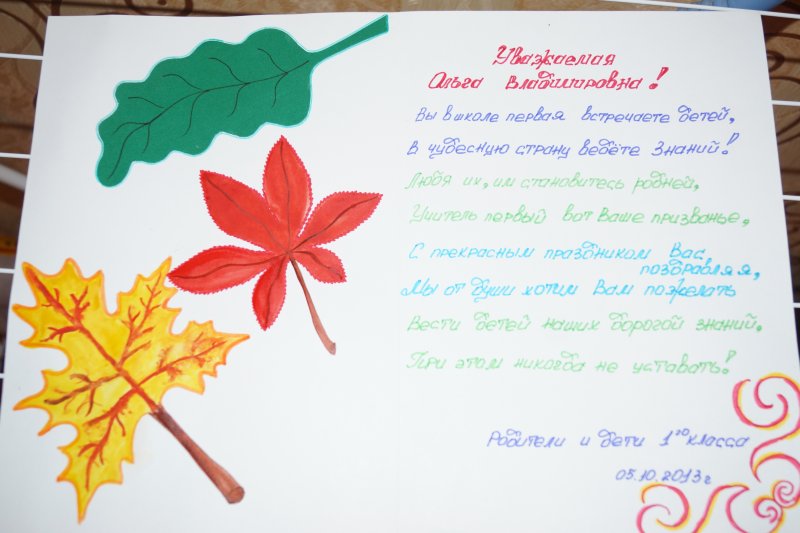 Уважаемая
Ольга Владимировна!
Вы в школе первая встречаете детей,
В чудесную страну ведёте Знаний!
Любя их, им становитесь родней,
Учитель первый вот Ваше призванье.
С прекрасным праздником Вас
поздравляя,
Мы от души хотим Вам пожелать
Вести детей наших дорогой знаний.
При этом никогда не уставать!
Родители и дети 1го класса
05.10.2013 г